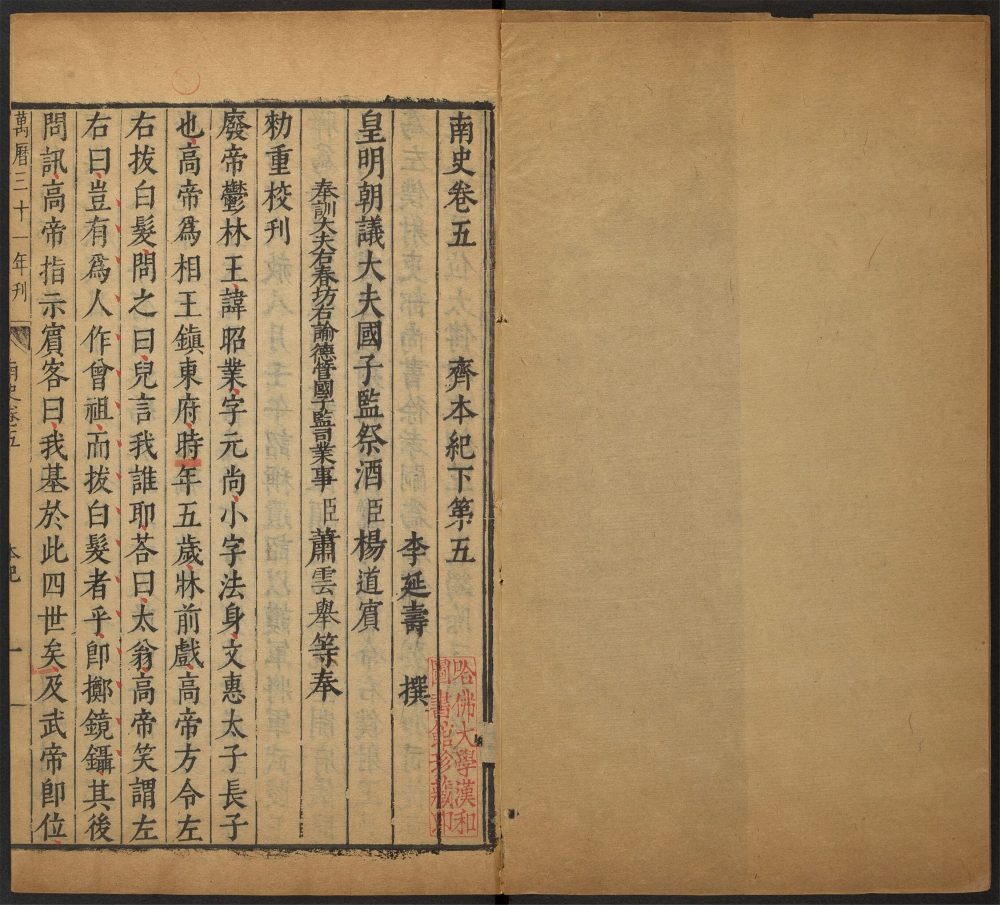 南史卷五 齊本紀下第五
李延壽 撰
皇明朝議大夫國子監祭酒臣楊道賔
奉訓大夫右春坊右諭德管國子監司業事臣蕭雲舉等奉
勑重校刊
廢帝鬱林王諱昭業字元尚小字法身文惠太子長子
也高帝爲相王鎮東府時年五歲牀前戲高帝方令左
右拔白髮問之曰兒言我誰耶荅曰太翁高帝笑謂左
右曰豈有爲人作曾祖而拔白髮者乎卽擲鏡鑷其後
問訊高帝指示賔客曰我基於此四世矣及武帝卽位
萬曆三十一年刊 南史卷五 本紀 一
哈佛大學漢和
圖書館珍藏印